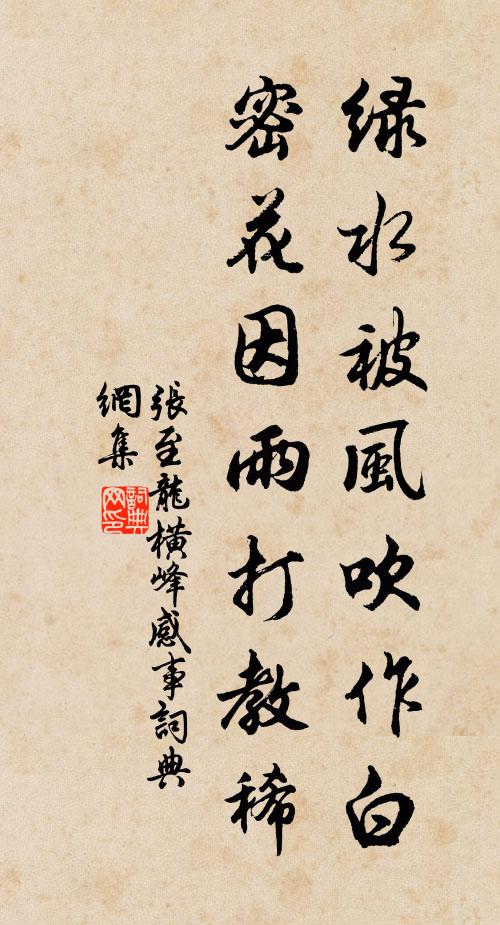 绿水被風吹作白
密花因雨打教稀
張至龍橫峰感事詞典
網集
詞典
网印